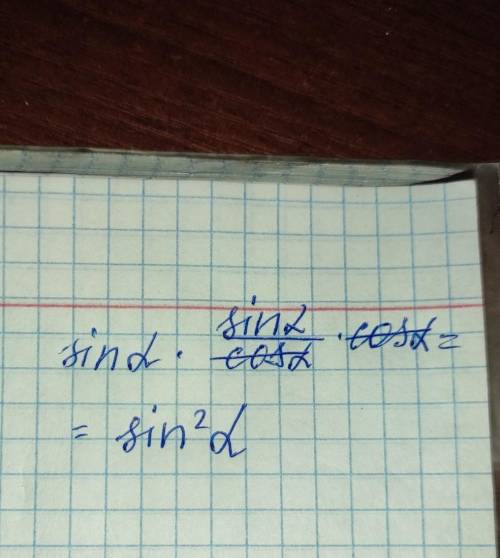 sinα · sinα/cosα · cosα =
= sin²α